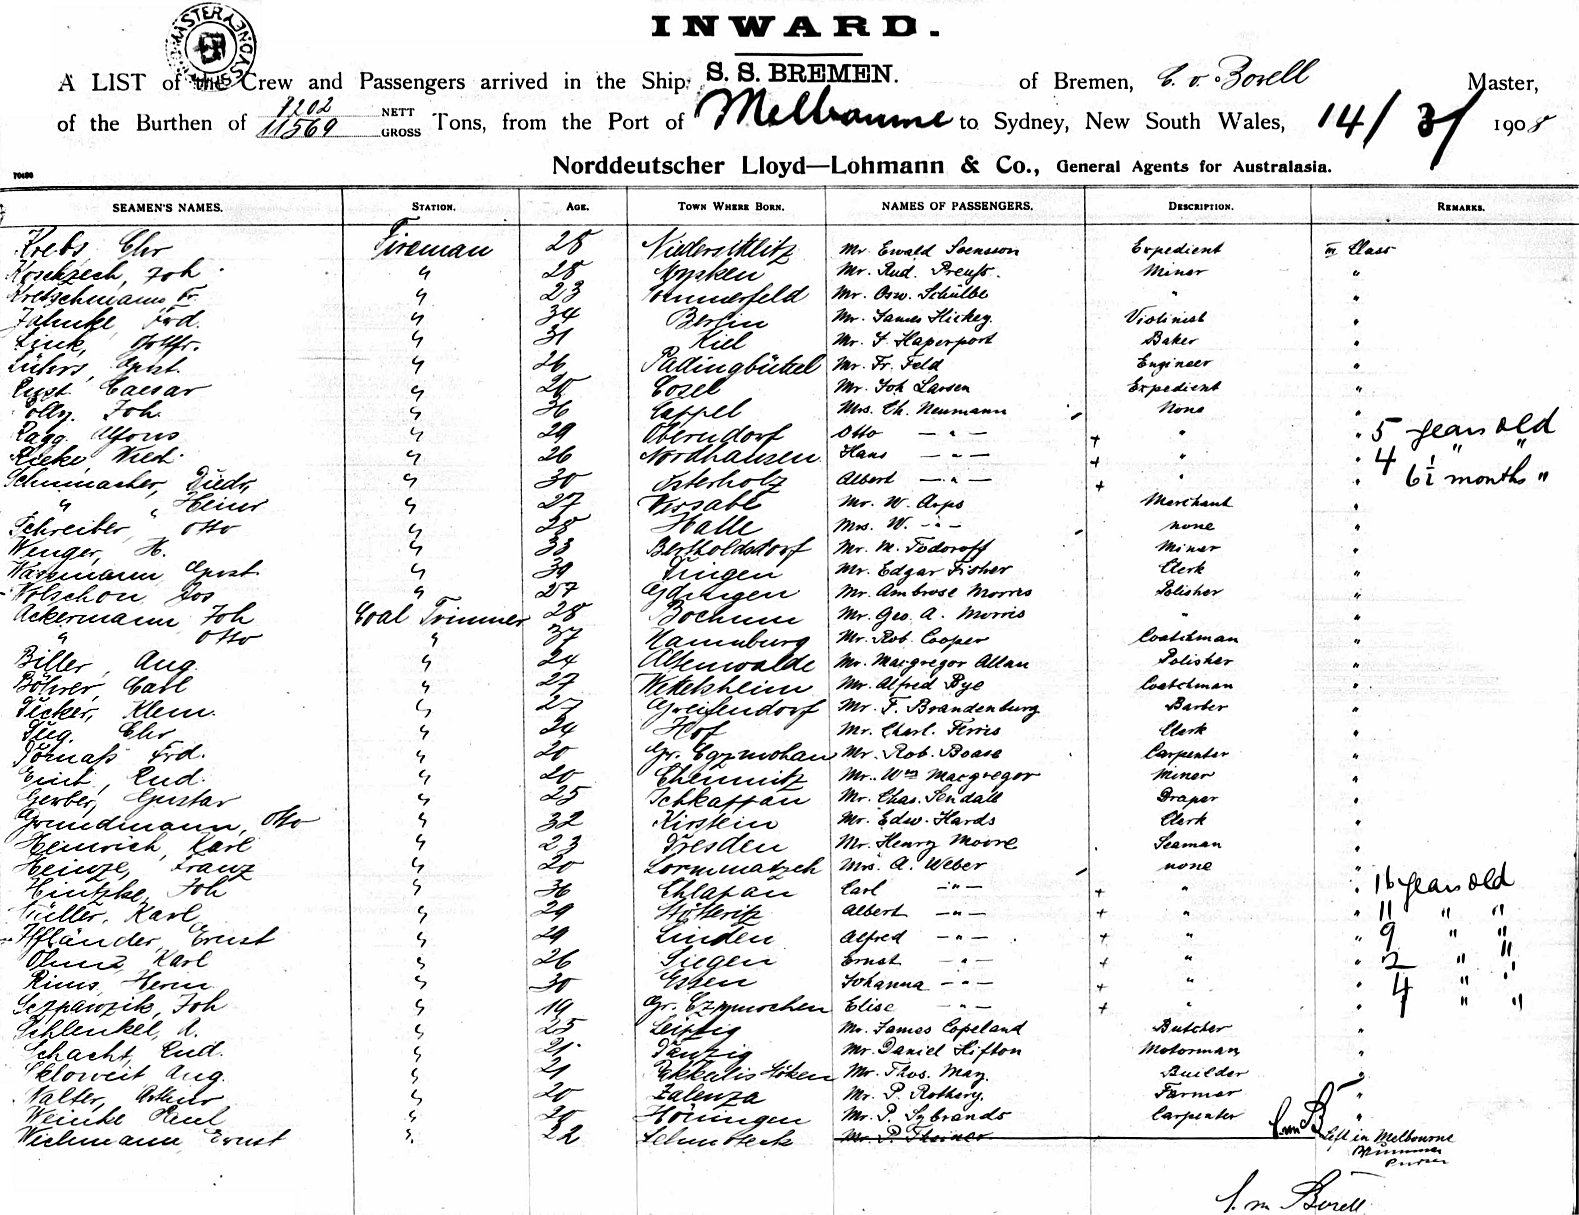 INWARD.
A LIST of the Crew and Passengers arrived in the Ship S. S. BREMEN. of Bremen, C. v. Borell Master,
of the Burthen of 11569 NETT GROSS Tons, from the Port of Melbourne to Sydney, New South Wales, 14/3/1908
Norddeutscher Lloyd—Lohmann & Co., General Agents for Australasia.
SEAMEN'S NAMES. STATION. AGE. TOWN WHERE BORN. NAMES OF PASSENGERS. DESCRIPTION. REMARKS.
Krebs, Chr Fireman 28 Mr. Ewald Svensson Expedient III Class
Koschzech, Joh " 28 Mr. Rud. Preuss. Miner "
Kretschmann Fr. " 23 Sommerfeld Mr. Osw. Schülbe " "
Jahnke, Frd. " 34 Berlin Mr. James Hickey Violinist "
Link, Gottfr. " 31 Kiel Mr. F. Haperport Baker "
Lührs, Gust. " 26 Padingbüttel Mr. Fr. Feld Engineer "
Caesar " 28 Cosel Mr. Joh Larsen Expedient "
Joh. " 36 Cappel Mrs. Ch. Neumann None "
Ragg, Alfons " 29 Oberndorf Otto — " — + " " 5 years old
Rieke, Wilh. " 26 Nordhausen Hans — " — + " " 4 " "
Schumacher, Diedr. " 30 Osterholz Albert — " — + " " 6½ months "
" " Heinr " 27 Mr. W. Arps Merchant "
Schreiber, Otto " 28 Halle Mrs. W. - " - none "
Wenger, H. " 33 Bertholdsdorf Mr. M. Todoroff Miner "
Wassmann, Gust. " 39 Mr. Edgar Fisher Clerk "
Wolschon Jos " 27 Mr. Ambrose Morris Polisher "
Ackermann Joh Coal Trimmer 28 Bochum Mr. Geo. A. Morris " "
" Otto " 37 Hamburg Mr. Rob. Cooper Coatchman "
Biller, Aug. " 24 Altenwalde Mr. Macgregor Allan Polisher "
Böhrer, Carl " 27 Mr. Alfred Bye Coatchman "
Dicker, Klem. " 27 Greifendorf Mr. F. Brandenburg Barber "
Chr " 24 Hof Mr. Charl. Ferris Clerk "
Frd. " 20 Mr. Rob. Boase Carpenter "
Rud. " 20 Chemnitz Mr. Wm Macgregor Miner "
Gerber, Gustav " 25 Mr. Chas. Sendall Draper "
Grundmann, Otto " 32 Kirstein Mr. Edw. Hards Clerk "
Heinrich, Karl " 23 Dresden Mr. Henry Moore Seaman "
Heinze, Franz " 20 Lommatzsch Mrs. A. Weber none "
Hintzke, Joh " 36 Carl - " - + " " 16 years old
Müller, Karl " 29 Stötteritz Albert — " — + " " 11 " "
Ernst " 29 Linden Alfred — " — + " " 9 " "
Karl " 26 Siegen Ernst - " - + " " 2 " "
Rims, Herm " 30 Essen Johanna - " - + " " 4 " "
Sczpanzik, Joh " 19 Gr. Czymochen Elise - " - + " " " "
Schlenkel, A. " 25 Leipzig Mr. James Copeland Butcher "
Schacht, Rud. " 21 Danzig Mr. Daniel Hifton Motorman "
Skloweit Aug. " 21 Mr. Thos. May. Builder "
Walter, Arthur " 20 Zalenza Mr. P. Rothery. Farmer "
Weinke Paul " 20 Höningen Mr. P. Sybrands Carpenter "
Wichmann Ernst " 22 Mr. P. Steiner Left in Melbourne
Purser